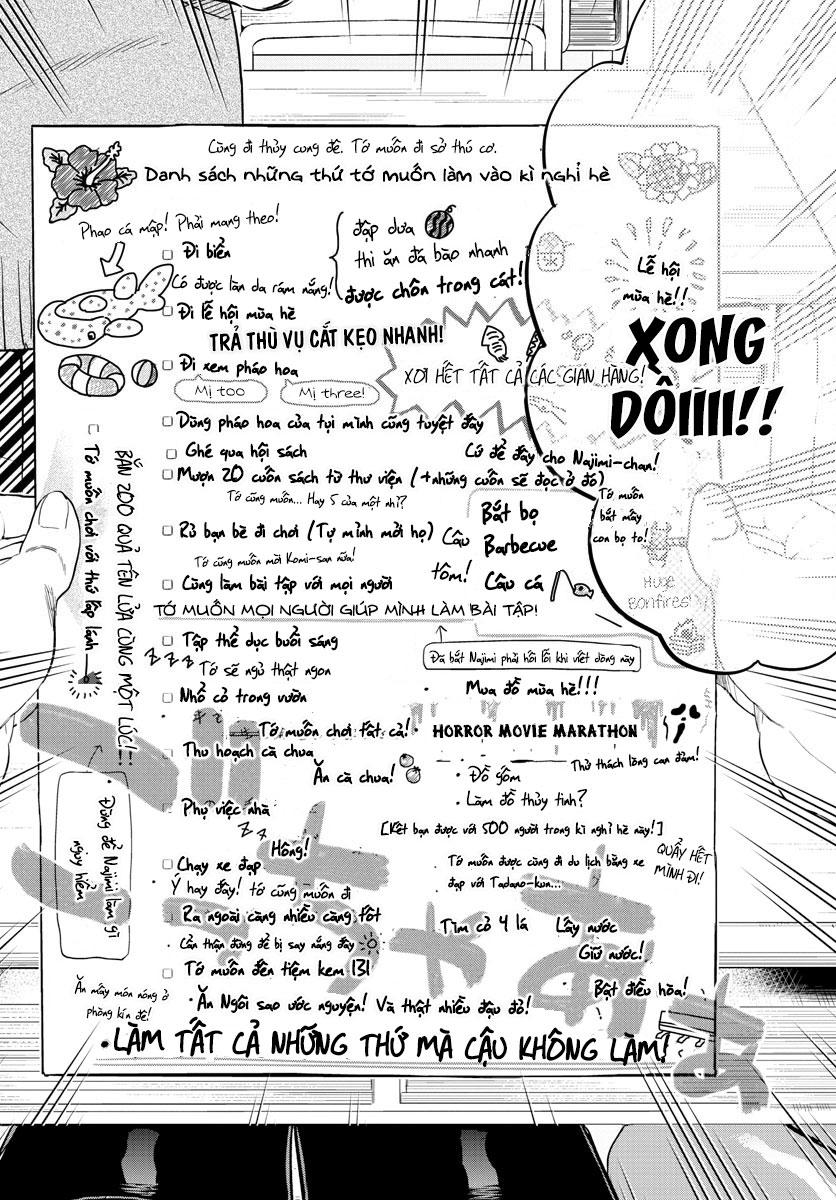 Cùng đi thủy cung đê. Tớ muốn đi sở thú cơ.
Danh sách những thứ tớ muốn làm vào kì nghỉ hè
Phao cá mập! Phải mang theo!
Đi biển
đập dưa
thi ăn đá bào nhanh
được chôn trong cát!
Có được làn da rám nắng!
Đi lễ hội mùa hè
TRẢ THÙ VỤ CẮT KẸO NHANH!
Lễ hội
mùa hè!!
XONG
DỒIIIII!!
Đi xem pháo hoa
XƠI HẾT TẤT CẢ CÁC GIAN HÀNG!
Mị too
Mị three!
Dùng pháo hoa của tụi mình cũng tuyệt đấy
Ghé qua hội sách
Cứ để đây cho Najimi-chan!
Mượn 20 cuốn sách từ thư viện (+những cuốn sẽ đọc ở đó)
Tớ cũng muốn... Hay 5 của một nhỉ?
Rủ bạn bè đi chơi (Tự mình mời họ)
Câu
tôm!
Bắt bọ
Barbecue
Câu cá
Tớ muốn
bắt mấy
con bọ to!
Huge
Bonfires!
Tớ cũng muốn mời Komi-san nữa!
Cùng làm bài tập với mọi người
TỚ MUỐN MỌI NGƯỜI GIÚP MÌNH LÀM BÀI TẬP!
Tớ muốn chơi với thứ lấp lánh
BẮN 200 QUẢ TÊN LỬA CÙNG MỘT LÚC!
Tập thể dục buổi sáng
Z Z Z
Tớ sẽ ngủ thật ngon
Đã bắt Najimi phải hối lỗi khi viết dòng này
Mua đồ mùa hè!!!
Nhổ cỏ trong vườn
Tớ muốn chơi tất cả!
HORROR MOVIE MARATHON
Thử thách lòng can đảm!
Thu hoạch cà chua
Ăn cà chua!
Đồ gốm
Làm đồ thủy tinh?
Đừng để Najimi làm gì
nguy hiểm
Phụ việc nhà
Z Z
[Kết bạn được với 500 người trong kì nghỉ hè này!]
Hông!
QUẨY HẾT
MÌNH ĐI!
Chạy xe đạp
Ý hay đấy! tớ cũng muốn đi
Tớ muốn được cùng đi du lịch bằng xe
đạp với Tadano-kun...
Ra ngoài càng nhiều càng tốt
Tìm cỏ 4 lá
Lấy nước
Giữ nước!
Cẩn thận đừng để bị say nắng đấy
Tớ muốn đến tiệm kem 131
Bật điều hòa!
Ăn mấy món nóng ở
phòng kín đê!
Ăn Ngôi sao ước nguyện! Và thật nhiều đậu đỏ!
LÀM TẤT CẢ NHỮNG THỨ MÀ CẬU KHÔNG LÀM!